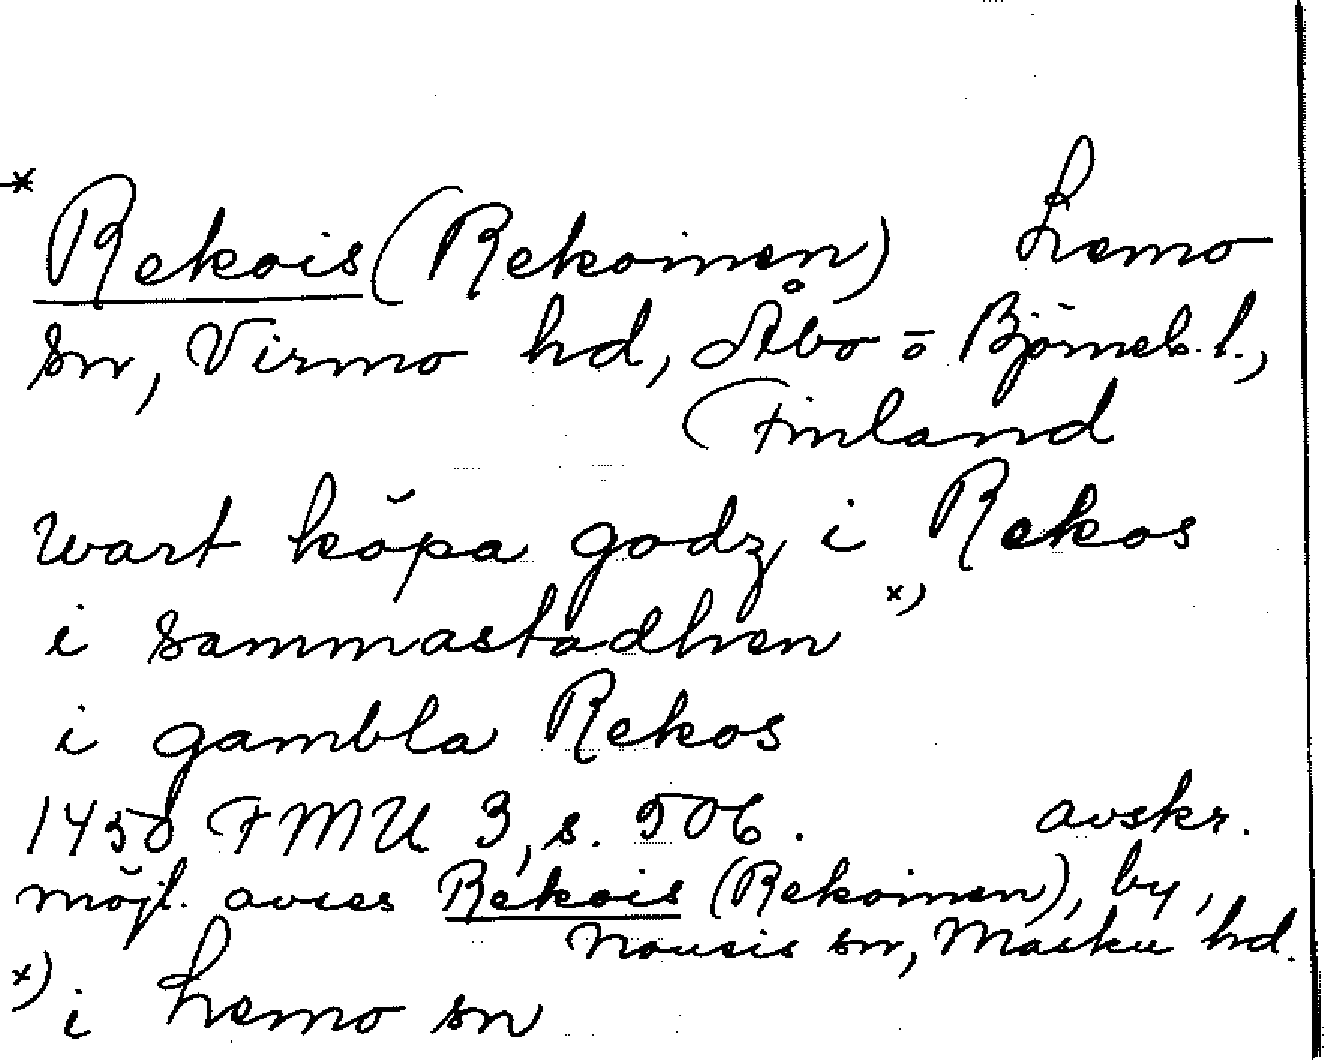 * Rekois (Rekoinen) Lemo
sn, Virmo hd, Åbo = o Björneb. l.,
Finland
wart köpa godz i Rekos
i sammastadhen x)
i gambla Rekos
1450 FMU 3, s. 506. avskr.
möjl. avses Rekois (Rekoinen), by,
Nousis sn, Masku hd.
x) i Lemo sn